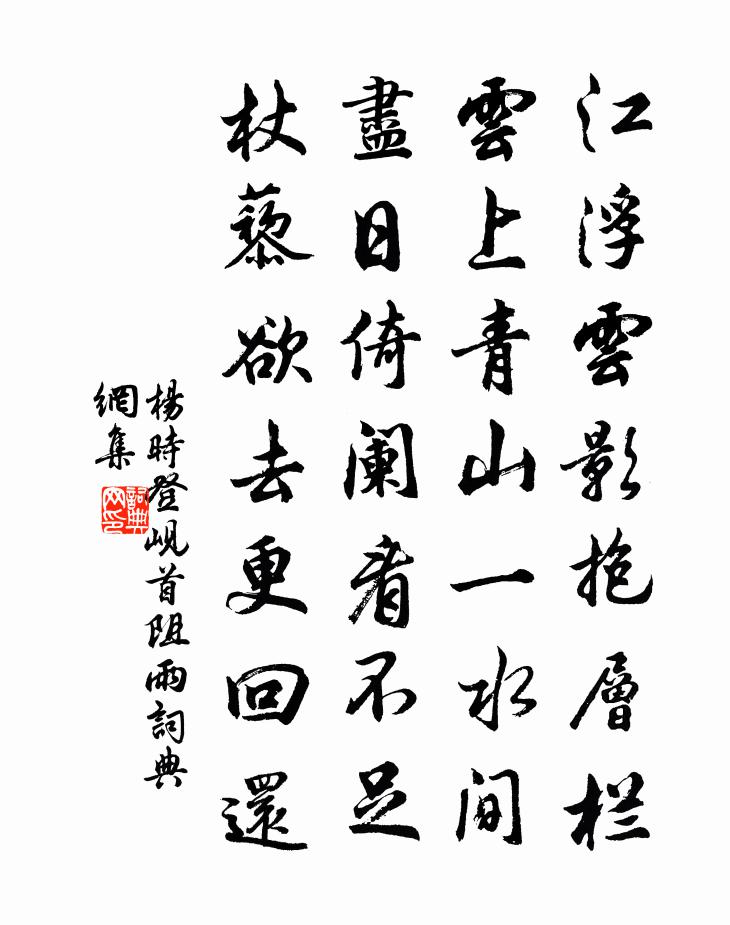 江浮雲影抱層栏
雲上青山一水間
盡日倚阑看不足
杖藜欲去更回還
楊時登峴首阻雨詞典
網集
詞典网印